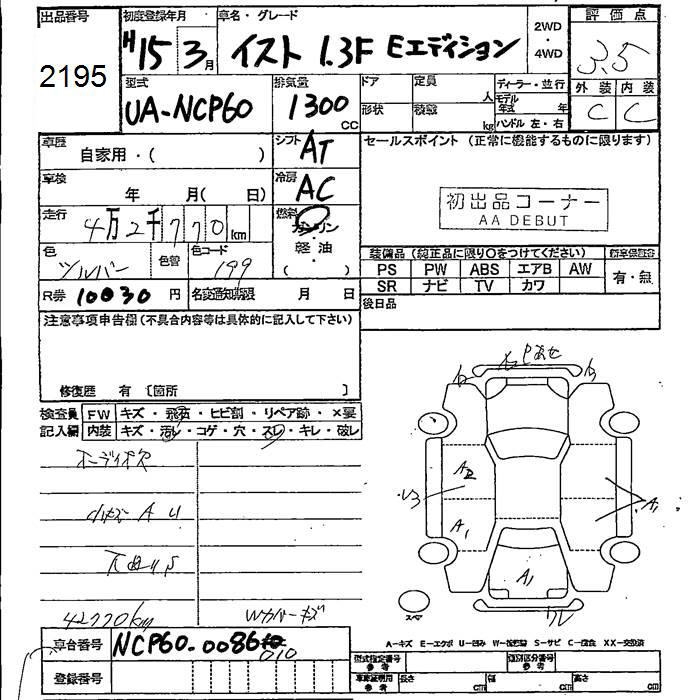 出品番号
2195
初度登録年月
H15 3月
車名・グレード
イスト 1.3F Eエディション
2WD
・
4WD
評価点
3.5
外装 内装
C C
型式
UA-NCP60
排気量
1300
cc
ドア 定員
人
形状 積載
kg
ディーラー・並行
モデル年式 年
ハンドル 左・右
車歴
自家用・( )
シフト
AT
セールスポイント (正常に機能するものに限ります)
車検
年 月( 日)
冷房
AC
初出品コーナー
AA DEBUT
走行
4万2千770km
燃料
ガソリン
・
軽油
・
( )
色
シルバー
色替
色コード
199
装備品 (純正品に限り○をつけてください)
新車保証書
PS PW ABS エアB AW
有・無
SR ナビ TV カワ
R券 10030 円
名変通知期限 月 日
後日品
注意事項申告欄(不具合内容等は具体的に記入して下さい)
修復歴 有 〔箇所 〕
検査員
記入欄
FW キズ・飛石・ヒビ割・リペア跡・×要
内装 キズ・汚れ・コゲ・穴・スレ・キレ・破レ
オーディオ欠
小キズ A U
下廻りS
42770km
Wカバーキズ
車台番号
NCP60-0086
010
登録番号
A2
A1
A1
A1
U3
ワレ
スペア
A-キズ E-エクボ U-凹み W-波形跡 S-サビ C-腐食 XX-交換済
型式指定番号
参考
類別区分番号
参考
車庫証明用
参考
長さ cm 幅 cm 高さ cm